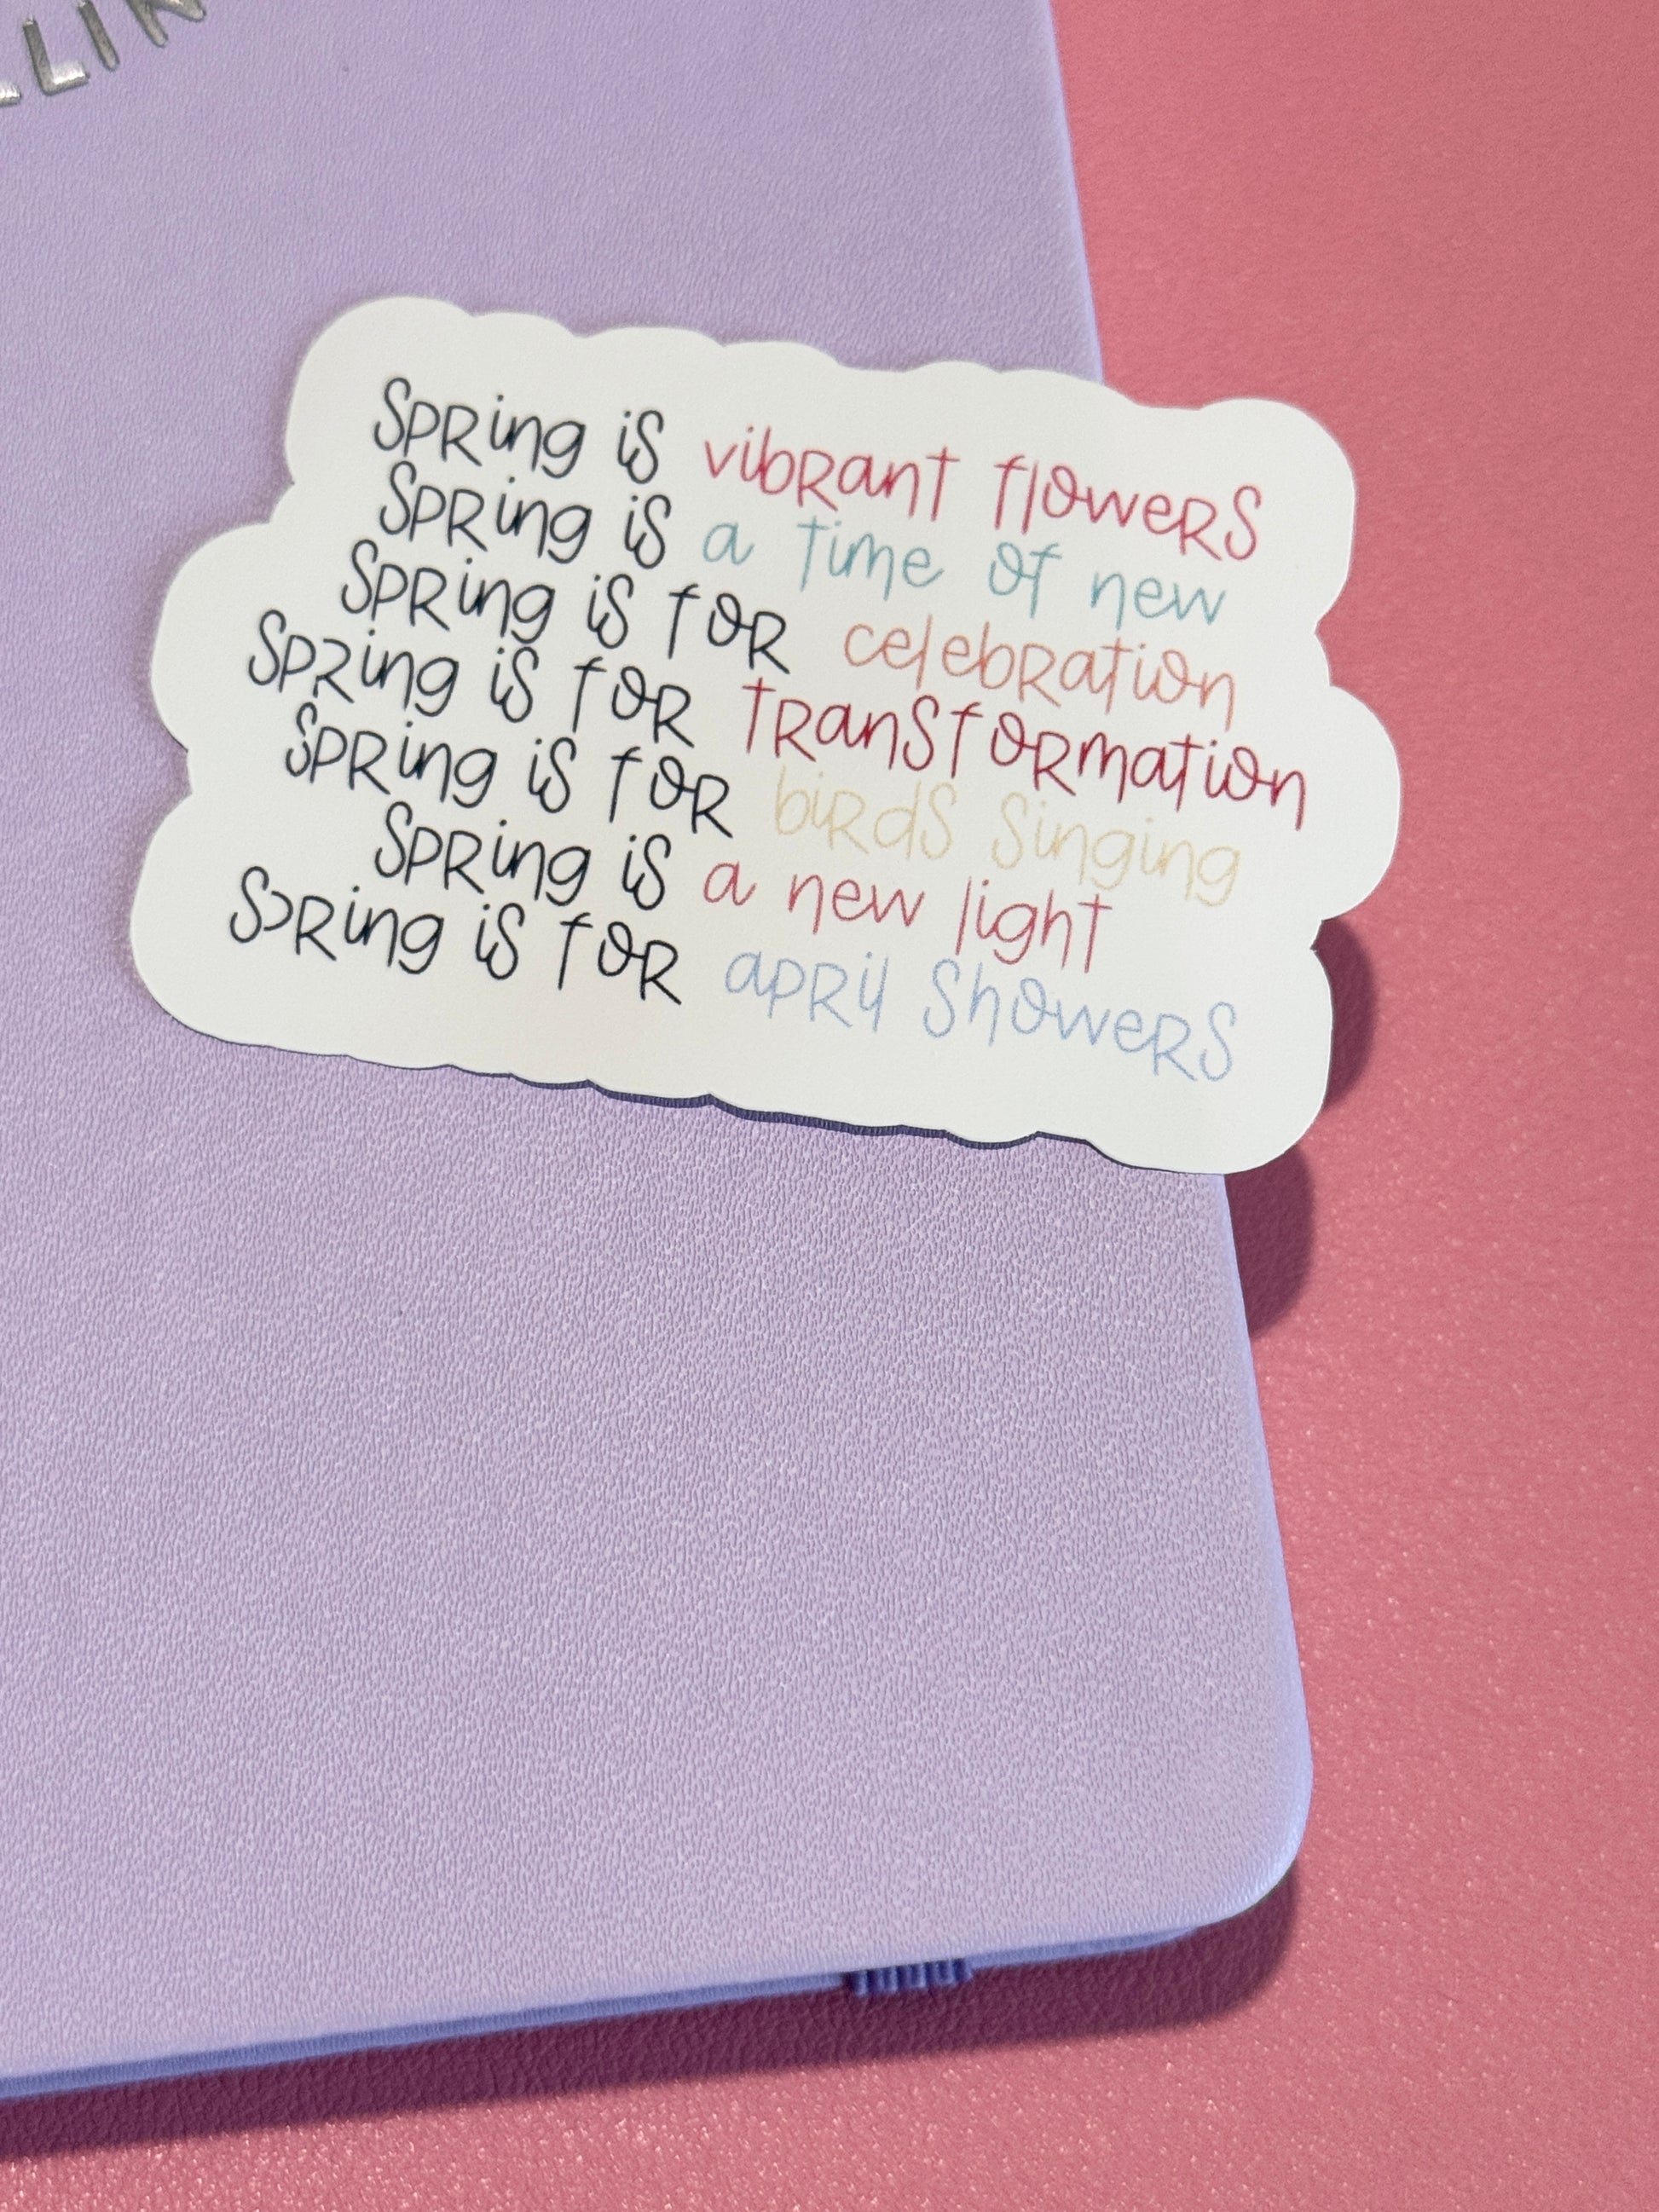 LLIN
SPRing is vibRant floweRS
SPRing is a time of new
SPRing is foR celebRation
SPRing is foR tRanSfoRmation
SPRing is foR biRdS Singing
SPRing is a new light
SPRing is foR apRil ShoweRS